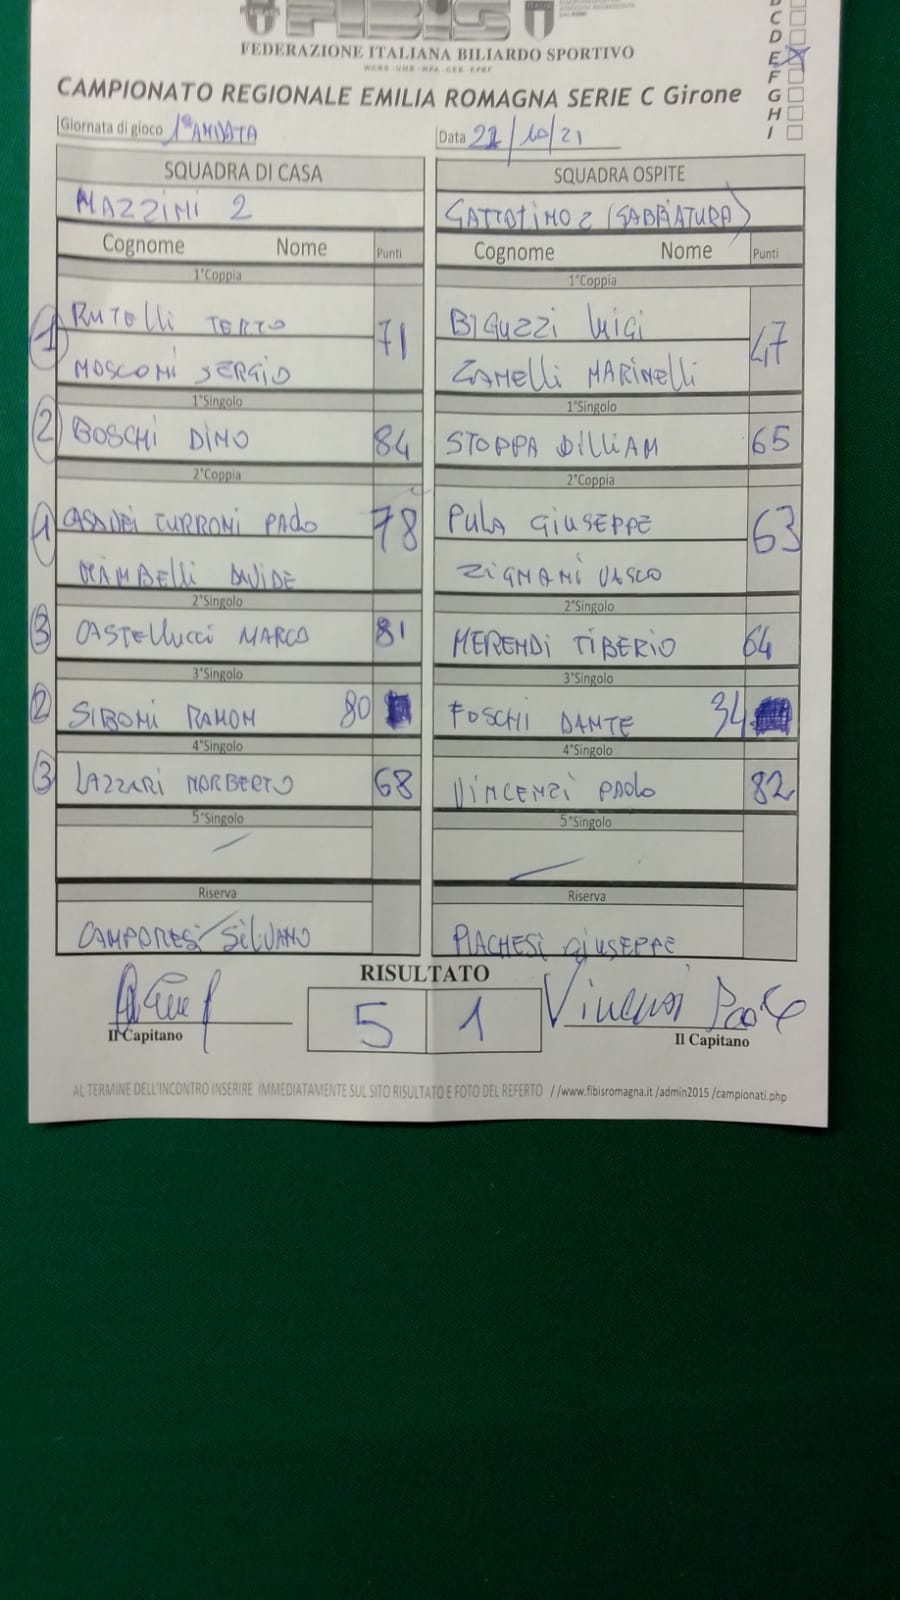 FIBIS
FEDERAZIONE ITALIANA BILIARDO SPORTIVO
CAMPIONATO REGIONALE EMILIA ROMAGNA SERIE C Girone
C
D
E X
F
G
H
I
Giornata di gioco 1° ANDATA
Data 22/10/21
SQUADRA DI CASA
SQUADRA OSPITE
MAZZINI 2
GATTOLINO 2 (SABBIATURA)
Cognome Nome Punti
Cognome Nome Punti
1°Coppia
1°Coppia
1 RUTELLI TERZO
MOSCONI SERGIO
71
BIGUZZI LUIGI
ZANELLI MARINELLI
47
1°Singolo
1°Singolo
2 BOSCHI DINO 84
STOPPA WILLIAM 65
2°Coppia
2°Coppia
CASADEI TURRONI PAOLO
DAVIDE
78
PULA GIUSEPPE
ZIGNANI VASCO
63
2°Singolo
2°Singolo
3 CASTELLUCCI MARCO 81
MERENDI TIBERIO 64
3°Singolo
3°Singolo
2 SIBONI RAMON 80
FOSCHI DANTE 34
4°Singolo
4°Singolo
3 LAZZARI NORBERTO 68
VINCENZI PAOLO 82
5°Singolo
5°Singolo
Riserva
Riserva
CAMPORESI SILVANO
PIACHESI GIUSEPPE
RISULTATO
5 1
Vincenzi Paolo
Il Capitano
Il Capitano
AL TERMINE DELL'INCONTRO INSERIRE IMMEDIATAMENTE SUL SITO RISULTATO E FOTO DEL REFERTO //www.fibisromagna.it /admin2015 /campionati.php